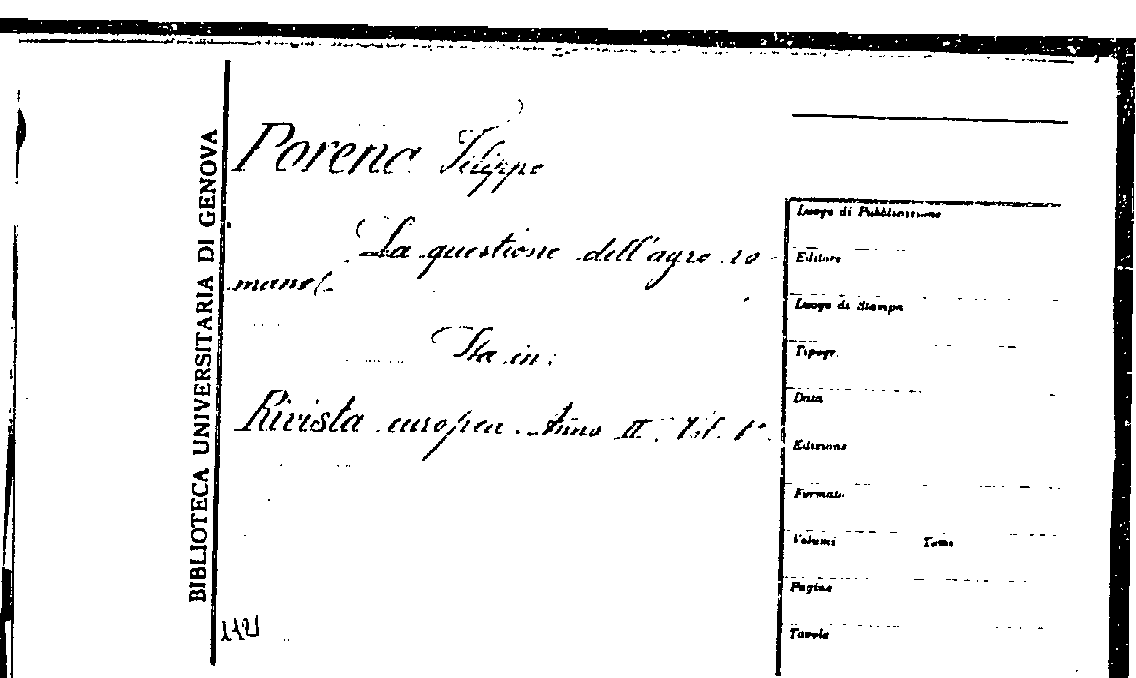 BIBLIOTECA UNIVERSITARIA DI GENOVA
Porena Filippo
La questione dell'agro ro-
mano
Sta in:
Rivista europea. Anno II.
Luogo di Pubblicazione
Editore
Luogo di Stampa
Tipogr.
Data
Edizione
Formato
Volumi Tomi
Pagine
Tavole